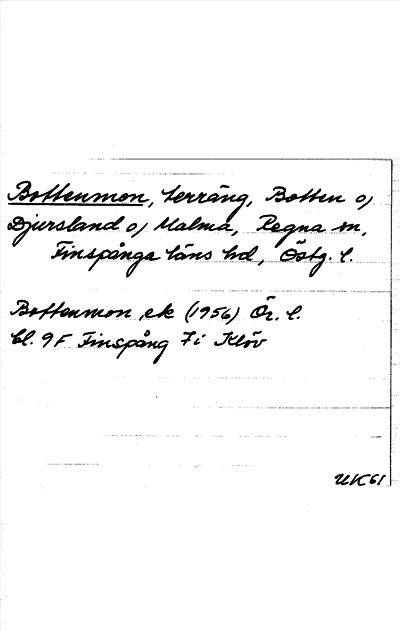 Bottenmon, terräng, Botten o/
Djursland o/ Malma, Regna sn,
Finspånga läns hd, Östg. l.
Bottenmon, ek (1956) Ör. l.
bl. 9F Finspång 7i Klöv
UK61